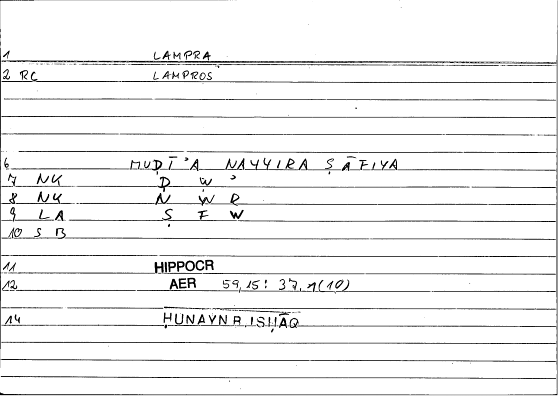 1 LAMPRA
2 RC LAMPROS
6 MUḌĪʾA NAYYIRA ṢĀFIYA
7 NK Ḍ W ʾ
8 NK N W R
9 LA Ṣ F W
10 S B
11 HIPPOCR
12 AER 59,15: 37,1(10)
14 ḤUNAYN B. ISḤĀQ